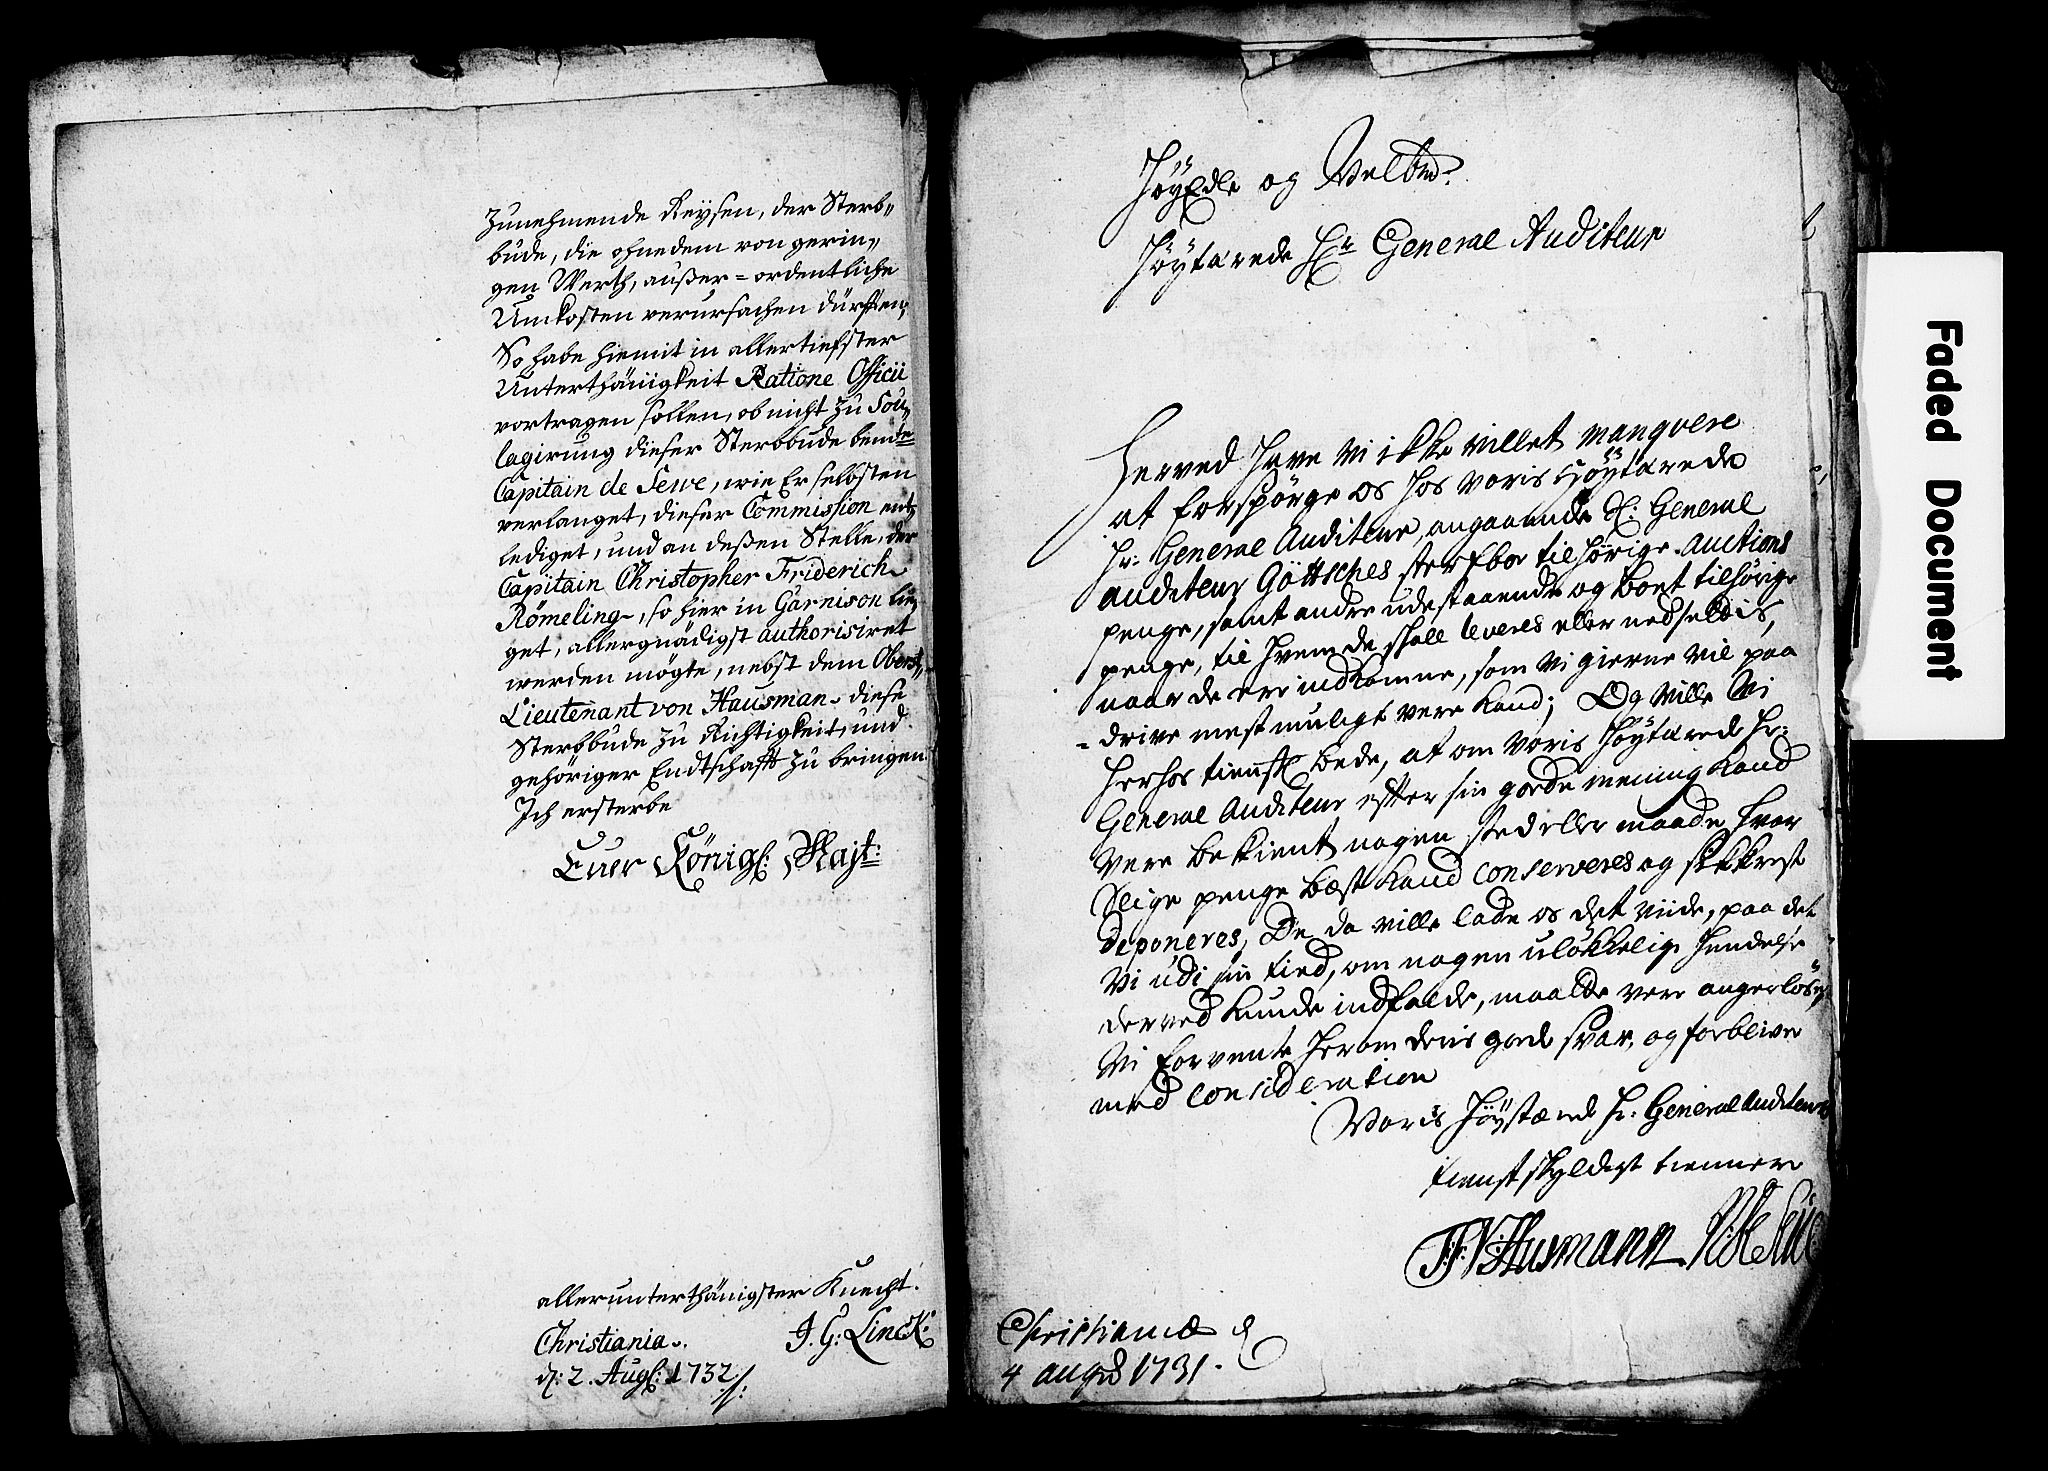 zunehmende Reysen, der Sterb„
bude, die ohnedem von gerin„
gen Werth, außer=ordentliche
Unkosten verursachen dürfften;
So habe hiemit in allertiefster
Unterthänigkeit Ratione Officii
vortragen sollen, ob nicht zu Sou„
lagirung dieser Sterbbude
Capitain de Seve, wie Er selbsten
verlanget, dieser Commission ent„
lediget, und an deßen Stelle, der
Capitain Christopher Friderich
Römeling, so hier in Garnison lie„
get, allergnädigst authorisiret
werden mögte, nebst dem Obrist„
Lieutenant von Hausman, diese
Sterbbude zu Richtigkeit, und
gehöriger Endtschafft zu bringen.
Ich ersterbe
Euer Königl: Majt:
allerunterthänigster Knecht.
Christiania. J. G: Linck.
d: 2. Augl: 1732
HøyEdle og Velbrd.
Høytærede Hr General Auditeur
Herved have vi ikke villet manqvere
at forspørge os hos voris Høytærede
Hr: General Auditeur, angaaende H: General
Auditeur Göttsches sterfboe tilhørige Auctions
penge, samt andre udestaaende og boet tilhørige
penge, til hvem de skall leveres eller nedsettis,
naar de ere indkomne, som vi gierne vil paa
=drive mest muligt være kand; Og ville Vi
herhos tienstl bede, at om voris Høytærede Hr:
General Auditeur efter sin goede mening kand
være bekient nogen sted eller maade, hvor
slige penge best kand conserveres og sikkrest
deponeres, De da ville lade os det viide, paa det
Vi udi sin tied, om nogen uløkkelig hendelse
derved kunde indfalde, maatte være angerløs,
Vi forvente herom deris goede svar, og forblive
med consideration
Voris Høystærede Hr: General Auditeurs
tienstskyldigst tiennere
F V: Husmann
Christiania d
4 augst 1731.
Faded Document